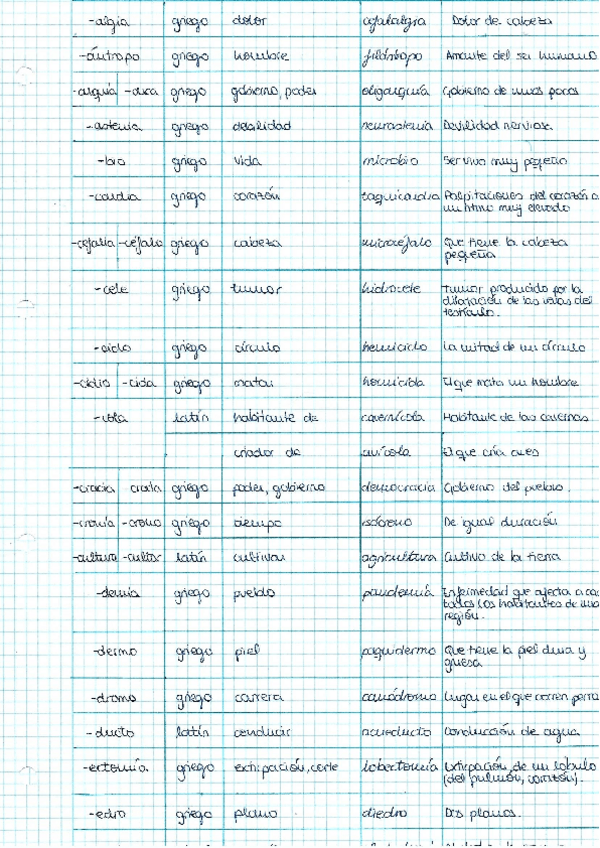 -algia griego dolor cefalalgia Dolor de cabeza
-ántropo griego hombre filántropo Amante del ser humano
-arquía -arca griego gobierno, poder oligarquía Gobierno de unos pocos
-astenia griego debilidad neurastenia Devilidad nerviosa.
-bio griego vida microbio Ser vivo muy pequeño
-cardia griego corazón taquicardia Palpitaciones del corazón a
un ritmo muy elevado
-cefalia -céfalo griego cabeza microcéfalo Que tiene la cabeza
pequeña
-cele griego tumor hidrocele Tumor producido por la
dilatación de las venas del
testículo.
-ciclo griego círculo hemiciclo La mitad de un círculo
-cidio -cida griego matar homicida El que mata un hombre
-cola latín habitante de cavernícola Habitante de las cavernas
criador de avícola El que cría aves
-cracia crata griego poder, gobierno democracia Gobierno del pueblo.
-cronía -crono griego tiempo isócrono De igual duración
-cultura -cultor latín cultivar agricultura Cultivo de la tierra
-demia griego pueblo pandemia Enfermedad que afecta a casi
todos los habitantes de una
región.
-dermo griego piel paquidermo Que tiene la piel dura y
gruesa
-dromo griego carrera canódromo Lugar en el que corren perros
-ducto latín conducir acueducto Conducción de agua.
-ectomía griego extirpación, corte lobectomía Extirpación de un lóbulo
(del pulmón, corazón).
-edro griego plano diedro Dos planos.